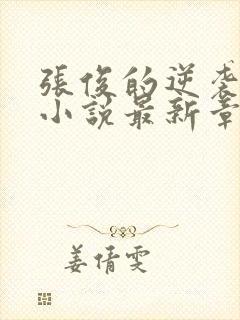 張俊的逆袭
小說最新章
姜倩雯